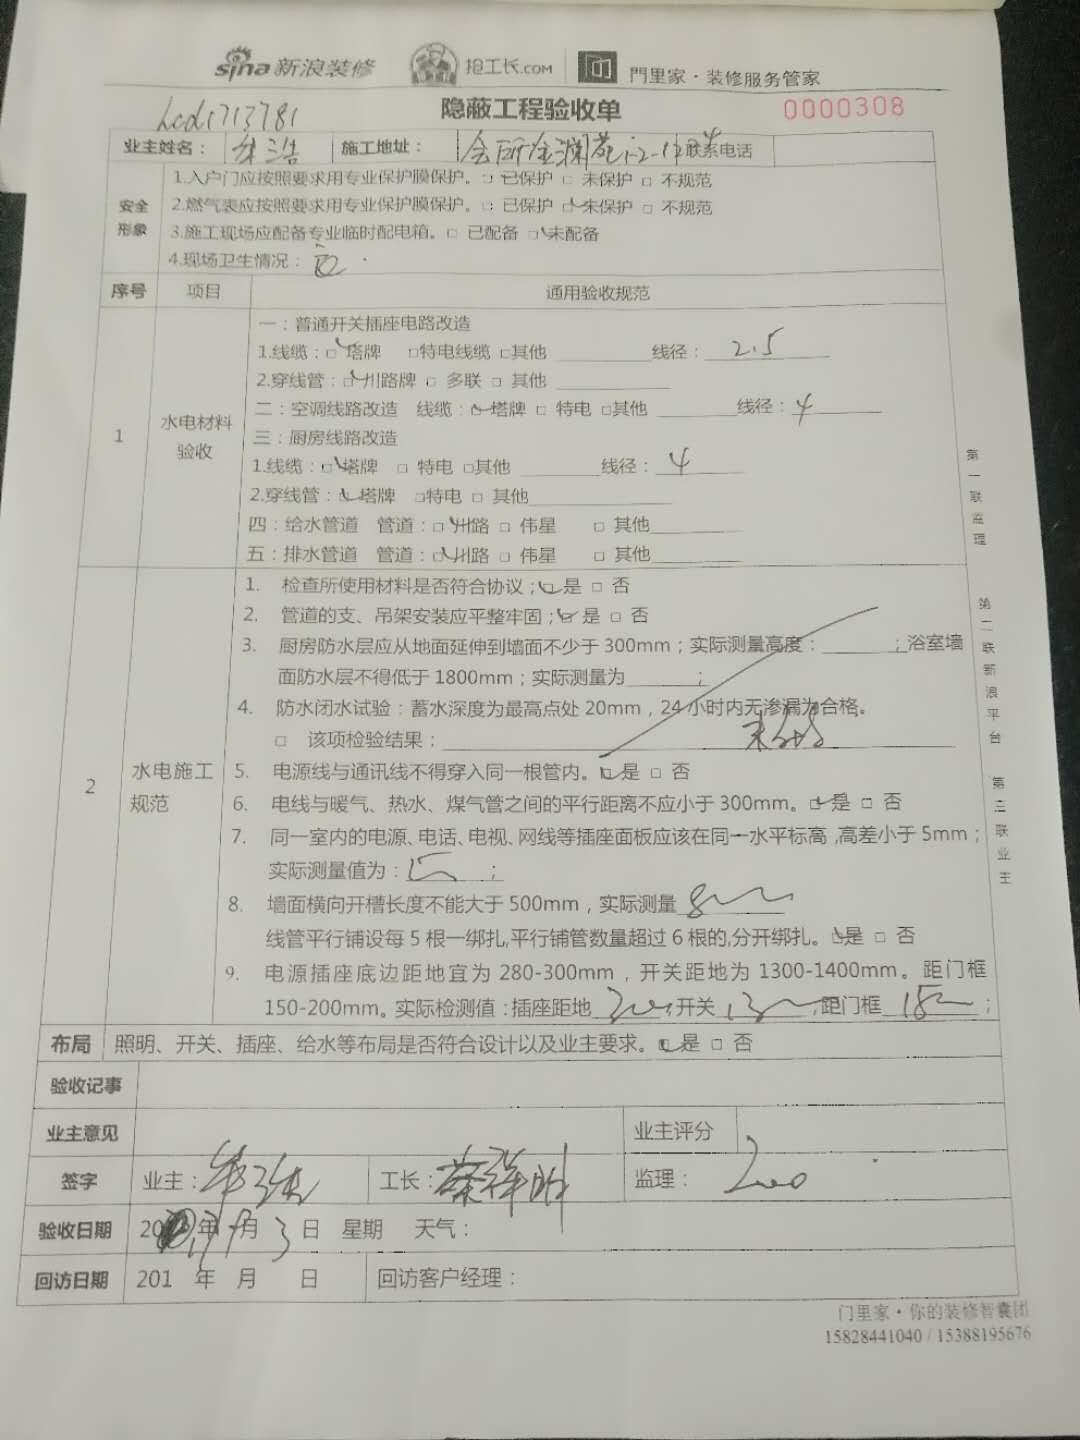 sina新浪装修 抢工长.COM 門里家·装修服务管家
隐蔽工程验收单 0000308
业主姓名： 施工地址： 联系电话
安全形象
1.入户门应按照要求用专业保护膜保护。□ 已保护 □ 未保护 □ 不规范
2.燃气表应按照要求用专业保护膜保护。□ 已保护 □ 未保护 □ 不规范
3.施工现场应配备专业临时配电箱。□ 已配备 □ 未配备
4.现场卫生情况：
序号 项目 通用验收规范
1 水电材料验收
一：普通开关插座电路改造
1.线缆：□ 塔牌 □特电线缆 □其他 线径： 2.5
2.穿线管：□ 川路牌 □ 多联 □ 其他
二：空调线路改造 线缆：□ 塔牌 □ 特电 □其他 线径：4
三：厨房线路改造
1.线缆：□ 塔牌 □ 特电 □其他 线径： 4
2.穿线管：□ 塔牌 □特电 □ 其他
四：给水管道 管道：□ 川路 □ 伟星 □ 其他
五：排水管道 管道：□ 川路 □ 伟星 □ 其他
2 水电施工规范
1. 检查所使用材料是否符合协议；□ 是 □ 否
2. 管道的支、吊架安装应平整牢固；□ 是 □ 否
3. 厨房防水层应从地面延伸到墙面不少于300mm；实际测量高度： ；浴室墙
面防水层不得低于1800mm；实际测量为 ；
4. 防水闭水试验：蓄水深度为最高点处20mm，24小时内无渗漏为合格。
□ 该项检验结果：
5. 电源线与通讯线不得穿入同一根管内。□ 是 □ 否
6. 电线与暖气、热水、煤气管之间的平行距离不应小于300mm。□ 是 □ 否
7. 同一室内的电源、电话、电视、网线等插座面板应该在同一水平标高,高差小于5mm；
实际测量值为： ；
8. 墙面横向开槽长度不能大于500mm，实际测量
线管平行铺设每5根一绑扎,平行铺管数量超过6根的,分开绑扎。□是 □ 否
9. 电源插座底边距地宜为280-300mm，开关距地为1300-1400mm。距门框
150-200mm。实际检测值：插座距地 开关 ,距门框 ；
布局 照明、开关、插座、给水等布局是否符合设计以及业主要求。□ 是 □ 否
验收记事
业主意见 业主评分
签字 业主： 工长：蔡祥明 监理：
验收日期 201 年 9月 3 日 星期 天气：
回访日期 201 年 月 日 回访客户经理：
门里家·你的装修智囊团
15828441040 / 15388195676
第一联监理
第二联新浪平台
第三联业主